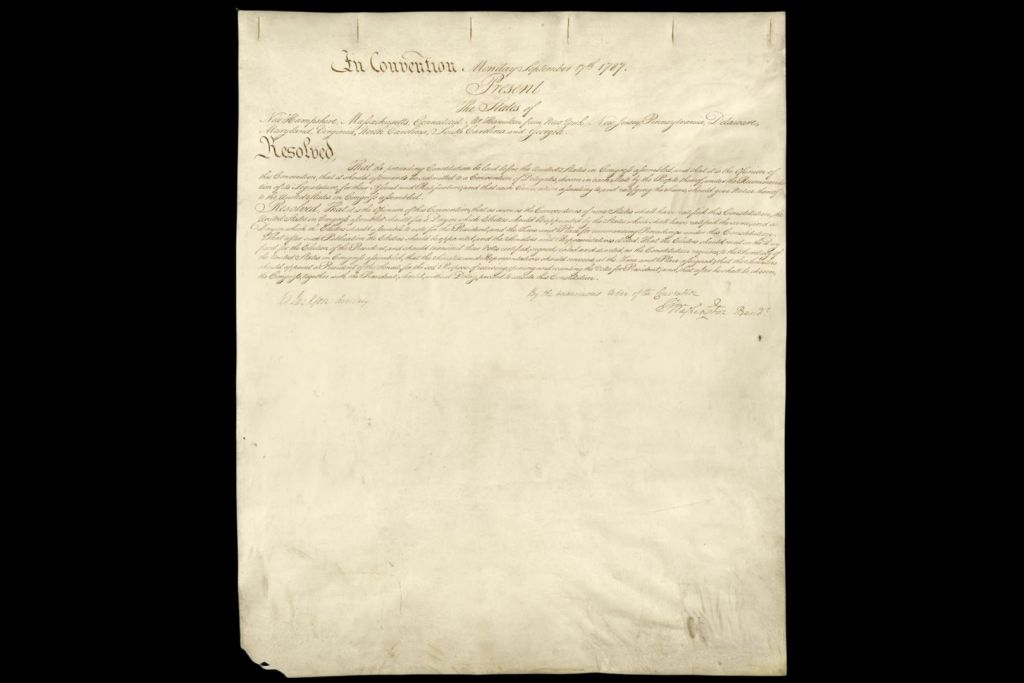 In Convention Monday September 17th 1787.
Present
The States of
New Hampshire, Massachusetts, Connecticut, Mr. Hamilton from New York, New Jersey, Pennsylvania, Delaware,
Maryland, Virginia, North Carolina, South Carolina and Georgia.
Resolved,
That the preceeding Constitution be laid before the United States in Congress assembled, and that it is the Opinion of
this Convention, that it should afterwards be submitted to a Convention of Delegates, chosen in each State by the People thereof, under the Recommenda-
tion of its Legislature, for their Assent and Ratification; and that each Convention assenting to, and ratifying the same, should give Notice thereof
to the United States in Congress assembled.
Resolved, That it is the Opinion of this Convention, that as soon as the Conventions of nine States shall have ratified this Constitution, the
United States in Congress assembled should fix a Day on which Electors should be appointed by the States which shall have ratified the same, and a
Day on which the Electors should assemble to vote for the President, and the Time and Place for commencing Proceedings under this Constitution.
That after such Publication the Electors should be appointed, and the Senators and Representatives elected: That the Electors should meet on the Day
fixed for the Election of the President, and should transmit their Votes certified, signed, sealed and directed, as the Constitution requires, to the Secretary of
the United States in Congress assembled, that the Senators and Representatives should convene at the Time and Place assigned; that the Senators
should appoint a President of the Senate, for the sole Purpose of receiving, opening and counting the Votes for President; and, that after he shall be chosen,
the Congress, together with the President, should, without Delay, proceed to execute this Constitution.
By the unanimous Order of the Convention
W. Jackson Secretary.
Go. Washington Presidt.